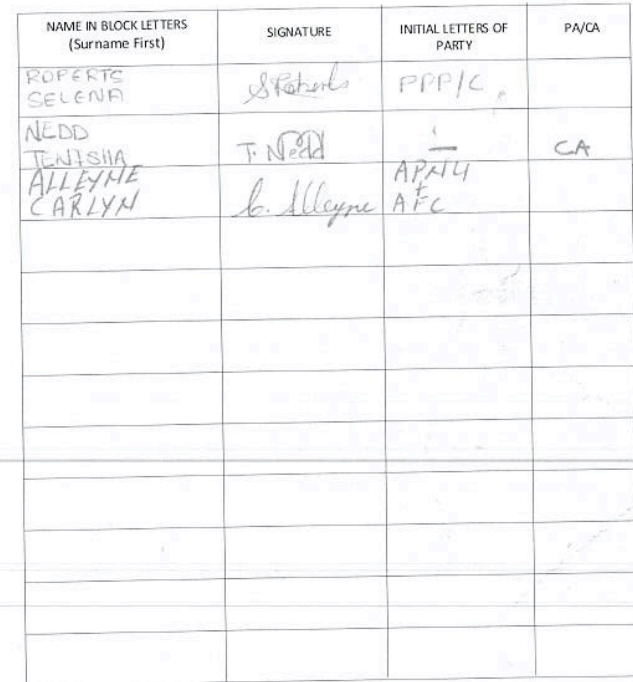 NAME IN BLOCK LETTERS
(Surname First)
SIGNATURE
INITIAL LETTERS OF
PARTY
PA/CA
ROPERTS
SELENA
SRoberts
PPP/C
NEDD
TENISHA
T. Nedd
-
CA
ALLEYNE
CARLYN
C. Alleyne
APNU
+
AFC